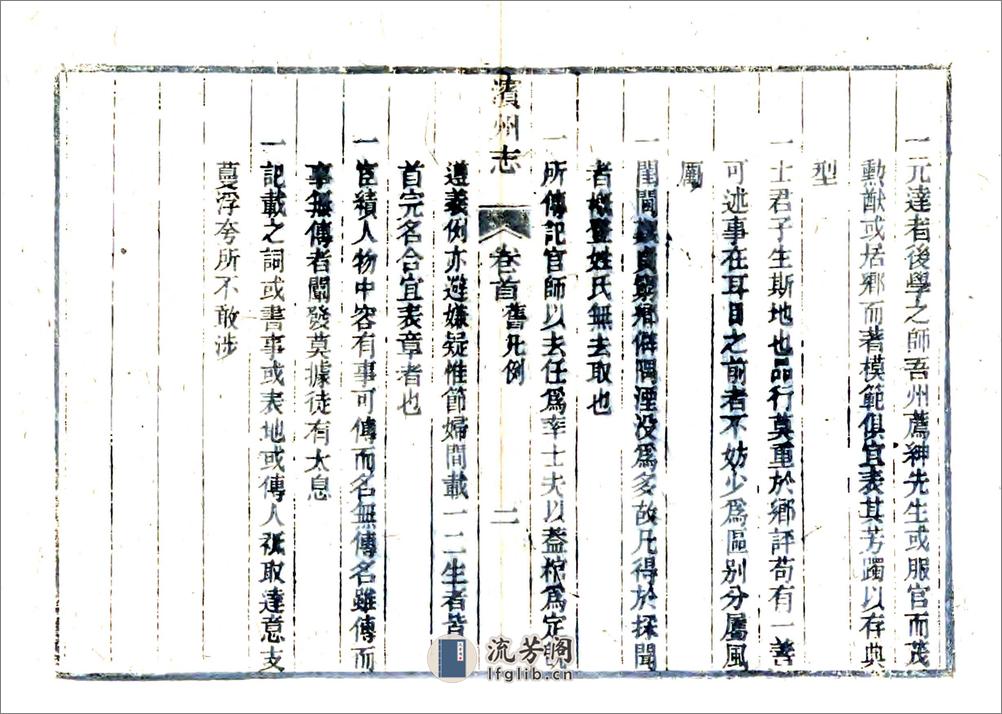 一先達者後學之師吾州薦紳先生或服官而茂
勲猷或居鄉而著模範俱宜表其芳躅以存典
型
一士君子生斯地也品行莫重於鄉評苟有一善
可述事在耳目之前者不妨少為區別分屬風
厲
一閨閫貞窮鄉僻隅湮没為多故凡得於採聞
者概登姓氏無去取也
一所傳記官師以去任為率士夫以蓋棺為定
濱州志
卷首 舊凡例
二
遵義例亦避嫌疑惟節婦間載一二生者皆
首完名合宜表章者也
一宦績人物中容有事可傳而名無傳名雖傳而
事無傳者闡發莫據徒有太息
一記載之詞或書事或表地或傳人祇取達意支
蔓浮夸所不敢涉
流芳閣
lfglib.cn